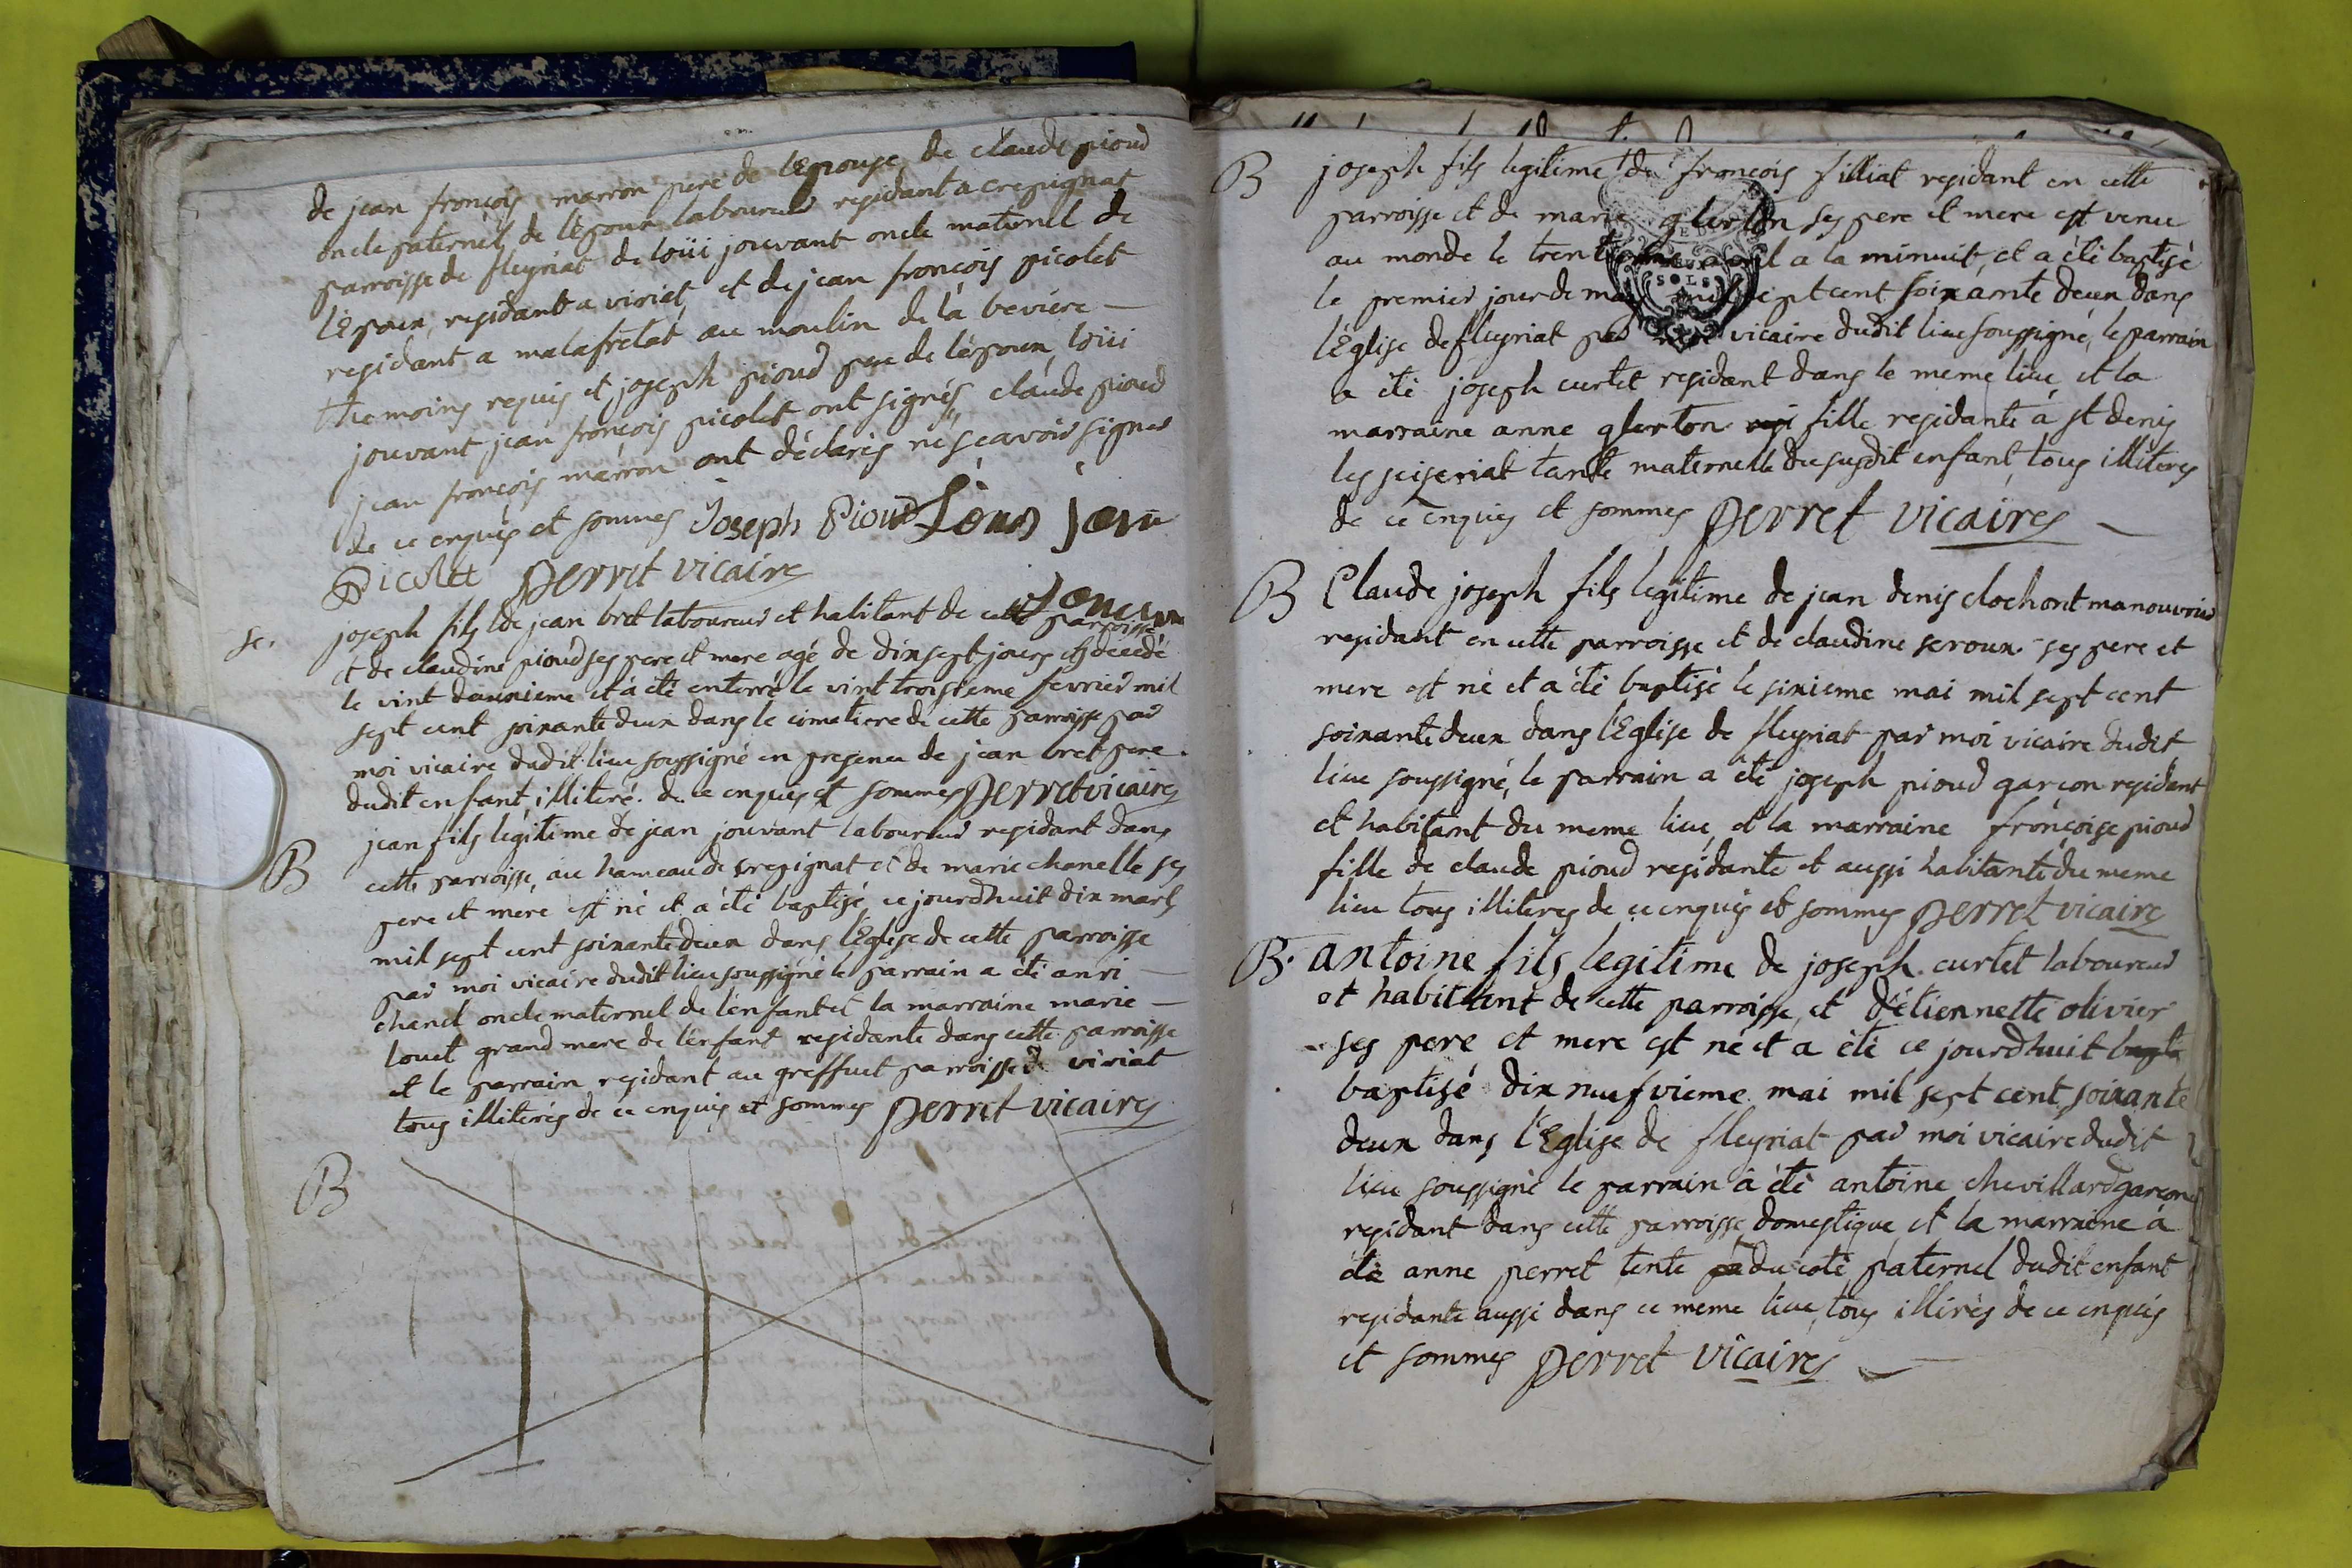 de jean françois marron pere de l'Epouse, de claude pioud
oncle paternel de l'èpoux laboureur residant a crepignat
parroisse de fleyriat de loüi jouvant oncle maternel de
l'Epoux, residant a viriat, et de jean françois picolet
residant a malafretat au moulin de là beviere —
themoins requis et joseph pioud pere de l'èpoux, loüi
jouvant jean françois picolet ont signés claude pioud
jean françois marron ont dèclarès ne sçeavoir signer
de ce enquis et sommes Joseph Pioud Louis jou
Picolet perret vicaire
se. joseph fils de jean bret laboureur et habitant de cette parroisse
et de claudine pioud ses pere et mere agé de dix sept jours est decedé
le vint deuxieme et à èté enterré le vint troisieme fevrier mil
sept cent soixante deux dans le cimetiere de cette parroisse par
moi vicaire dudit lieu soussigné en presence de jean bret pere
dudit enfant, illiteré. de ce enquis et sommes perret vicaire
B jean fils legitime de jean jouvant laboureur residant dans
cette parroisse, au hameau de crepignat et de marie chanelle ses
pere et mere est né et à èté baptisé, ce jourdhuit dix mars
mil sept cent soixante deux dans l'Eglise de cette parroisse
par moi vicaire dudit lieu soussigné le parrain a èté anri —
chanel oncle maternel de l'enfant et la marraine marie —
louet grand mere de l'enfant residante dans cette parroisse
et le parrain residant au greffuet parroisse de viriat
tous illiterés de ce enquis et sommes perret vicaire
B
B joseph fils legitime de françois filliat residant en cette
parroisse et de marie glerton ses pere et mere est venu
au monde le trentieme avril a la minuit, et a èté baptisé
le premier jour de may mil sept cent soixante deux dans
l'Eglise de fleyriat par moi vicaire dudit lieu soussigné, le parrain
a èté joseph curtet residant dans le meme lieu, et la
marraine anne glerton fille residante à st denis
les seiseriat tante maternelle du susdit enfant, tous illiteres
de ce enquis et sommes perret vicaire —
B Claude joseph fils legitime de jean denis clochont manouvrier
residant en cette parroisse et de claudine seroux ses pere et
mere est né et a èté baptisé le sixieme mai mil sept cent
soixante deux dans l'Eglise de fleyriat par moi vicaire dudit
lieu soussigné, le parrain a èté joseph pioud garçon residant
et habitant du meme lieu, et la marraine françoise pioud
fille de claude pioud residante et aussi habitante du meme
lieu tous illiteres de ce enquis et sommes perret vicaire
B. antoine fils legitime de joseph curtet laboureur
et habittent de cette parroisse, et d'ètiennette olivier
ses pere et mere est né et a èté ce jourdhuit bapte
baptisé dix neufvieme mai mil sept cent soixante
deux dans l'Eglise de fleyriat par moi vicaire dudit
lieu soussigné le parrain à èté antoine chevillard garçon
residant dans cette parroisse, domestique, et la marraine à
èté anne perret tente pa du coté paternel dudit enfant
residante aussi dans ce meme lieu, tous illirès de ce enquis
et sommes perret vicaire —
SOLS